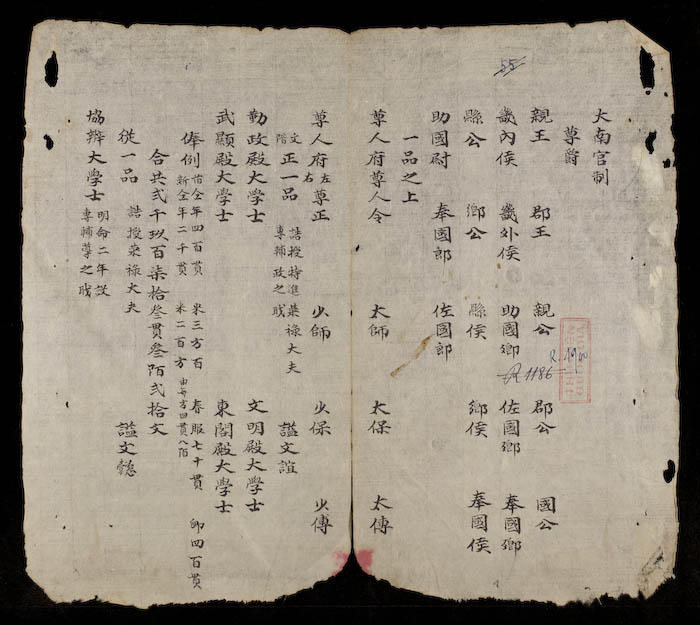 55
大南官制
尊爵
親王 郡王 親公 郡公 國公
畿內侯 畿外侯 助國鄉 佐國鄉 奉國鄉
縣公 鄉公 縣侯 鄉侯 奉國侯
助國尉 奉國郎 佐國郎
一品之上
尊人府尊人令 太師 太保 太傅
R 1186
尊人府左右尊正 少師 少保 少傅
文階正一品 誥授特進榮祿大夫 專輔政之職 謚文誼
勤政殿大學士 文明殿大學士
武顯殿大學士 東閣殿大學士
俸例 全年四百貫 新全年二千貫 米三方百 米二百方 由每方四貫八陌 春服七十貫 四百貫
合共弍千玖百柒拾叄貫叄陌弍拾文
從一品 誥授榮祿大夫 謚文懿
協辨大學士 明命二年設 專輔導之職